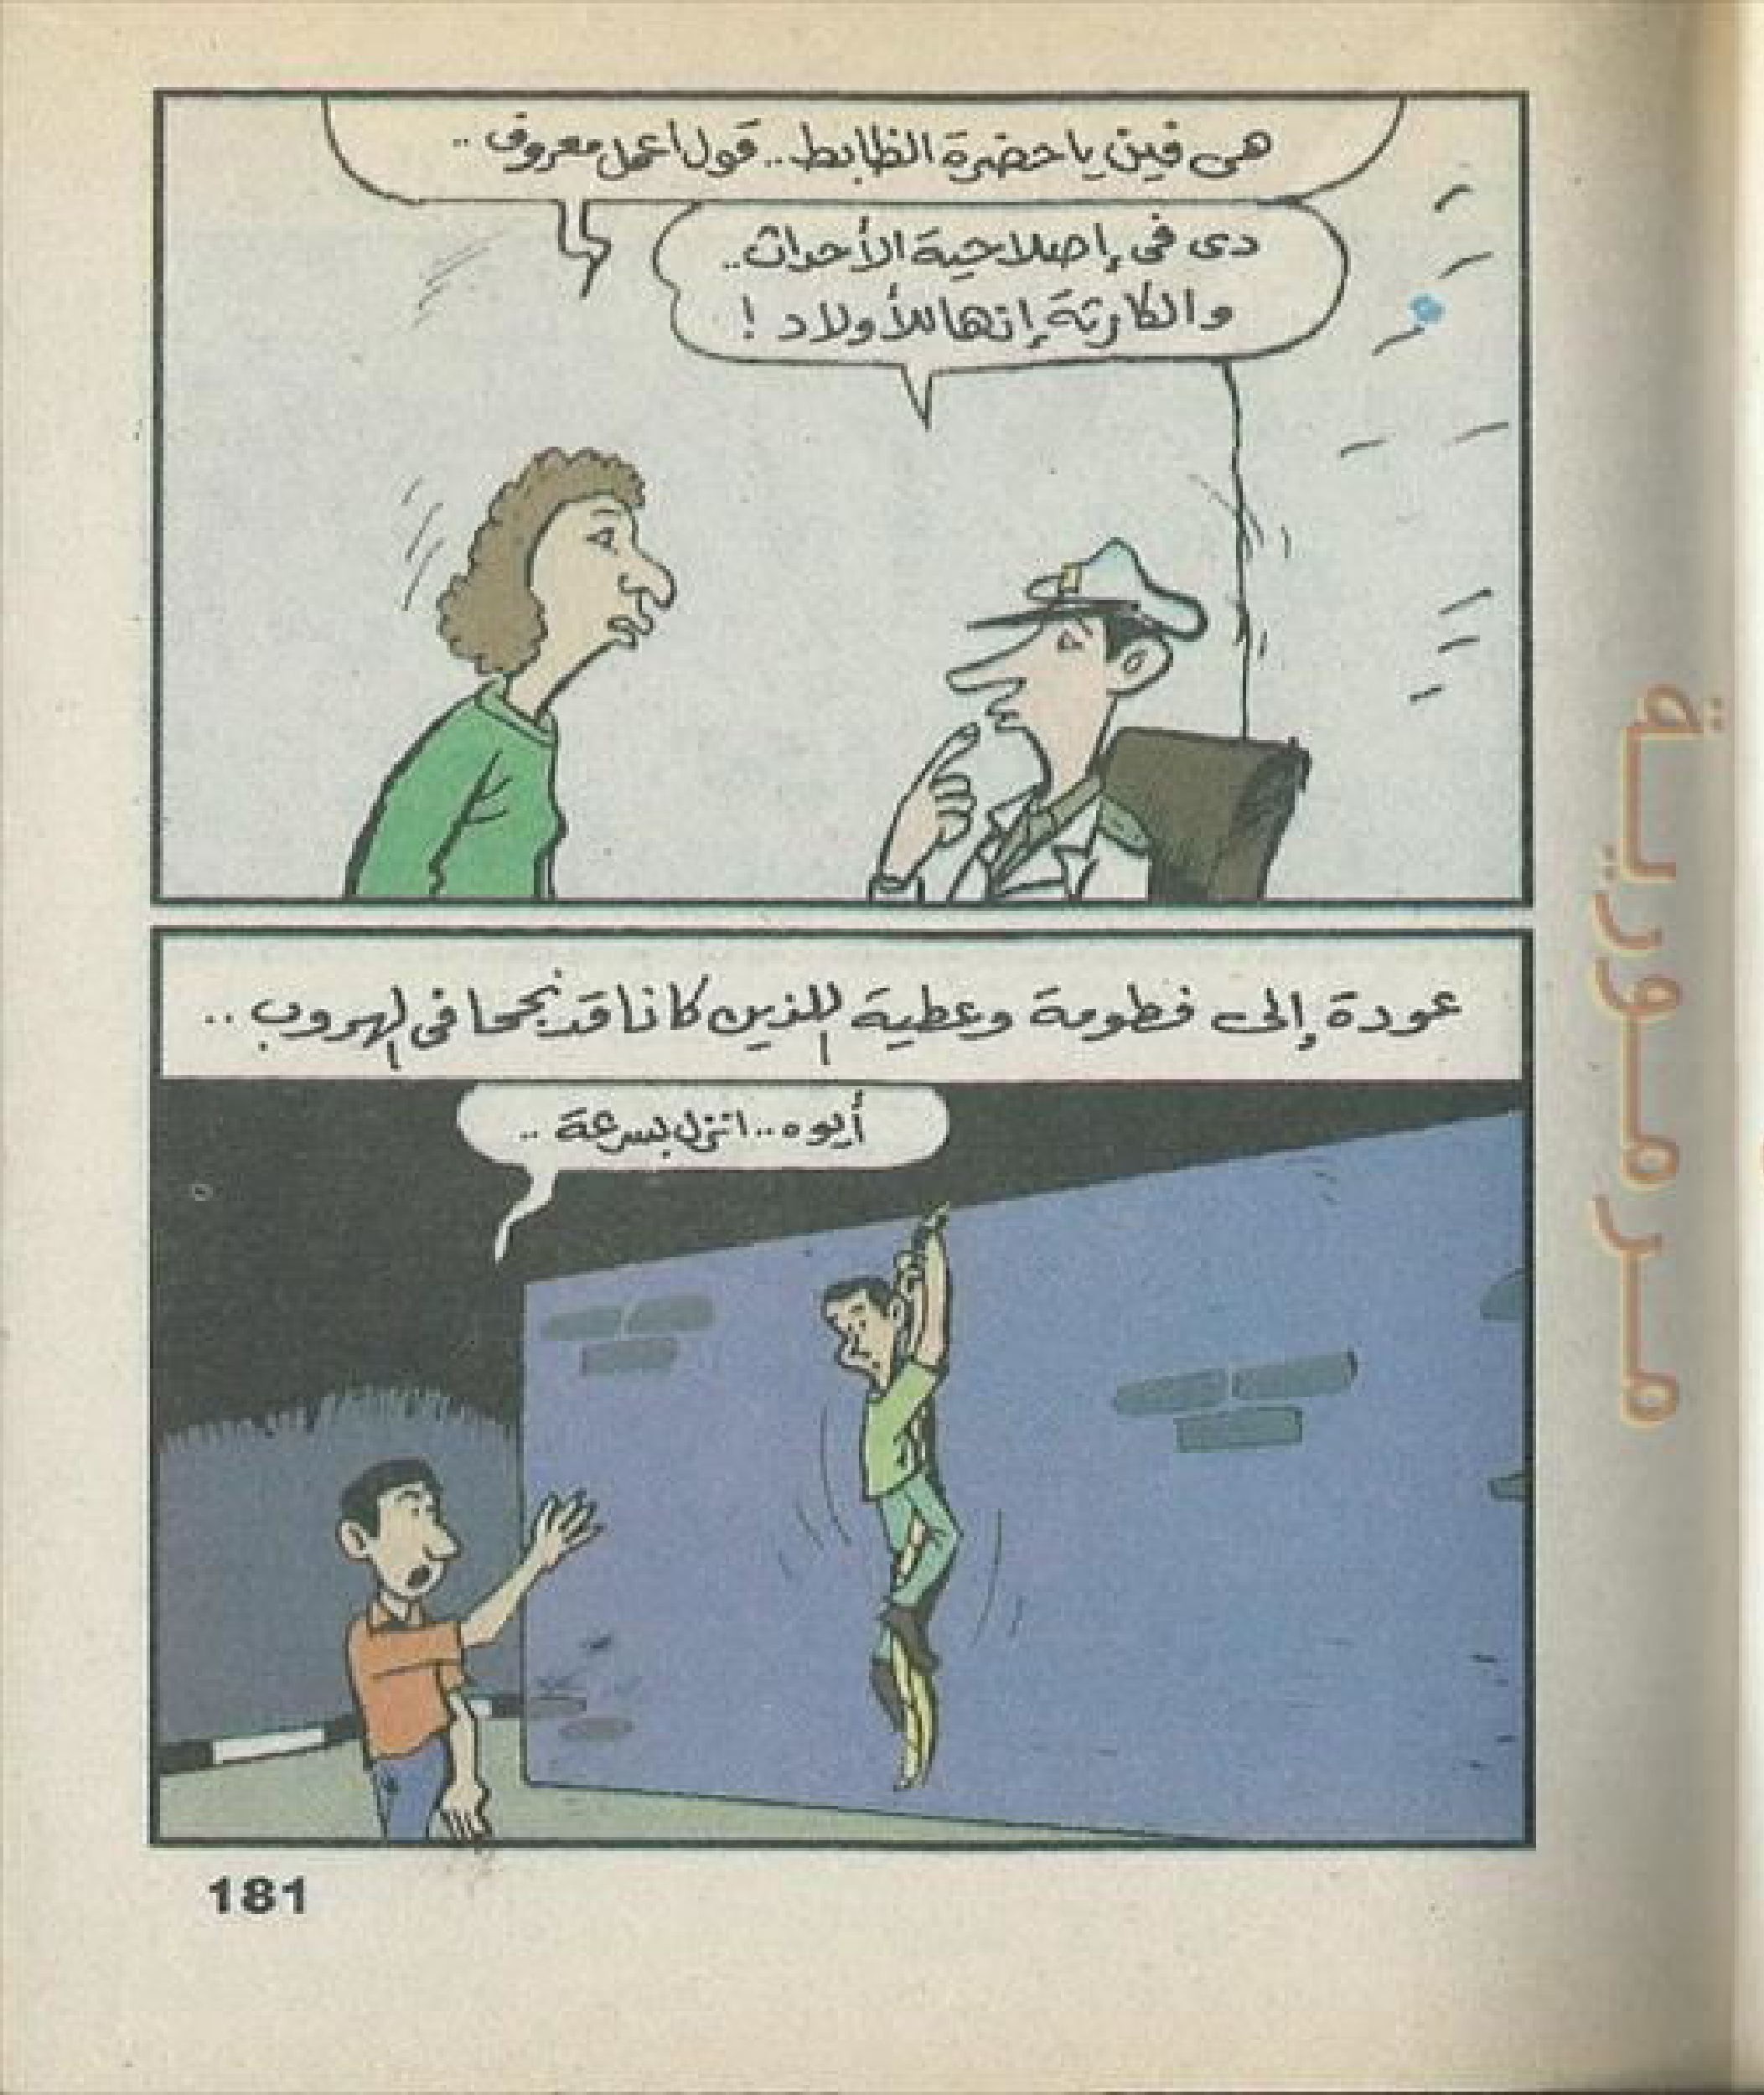 هى فين يا حضرة الظابط.. قول اعمل معروف..
دى فى إصلاحية الأحداث..
والكارثة إنها للأولاد !
عودة إلى فطومة وعطية اللذين كانا قد نجحا فى الهروب..
أيوه.. انزل بسرعة..
مرمورية
181